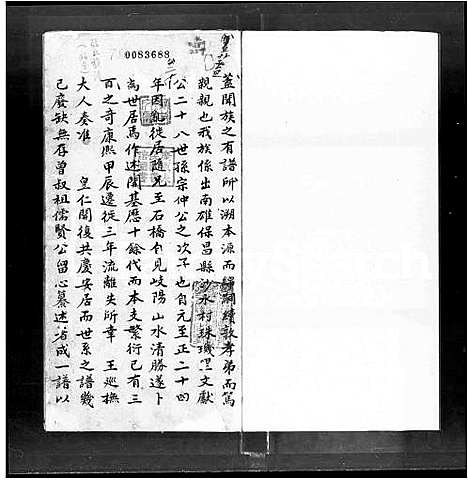 0083688
蓋聞族之有譜所以溯本源而續嗣續敦孝弟而篤
親親也我族係出南雄保昌縣沙水村珠璣里文獻
公二十八世孫宗仲公之次子也自元至正二十四
年因亂徙居隨兄至石橋自見岐陽山水清勝遂卜
為世居焉作述闊基歷十餘代而本支繁衍已有三
百之奇康熙甲辰遷徙三年流離失所幸 王巡撫
大人奏准 皇仁開復共慶安居而世系之譜幾
已廢缺無存曾叔祖儒賢公留心纂述若成一譜以